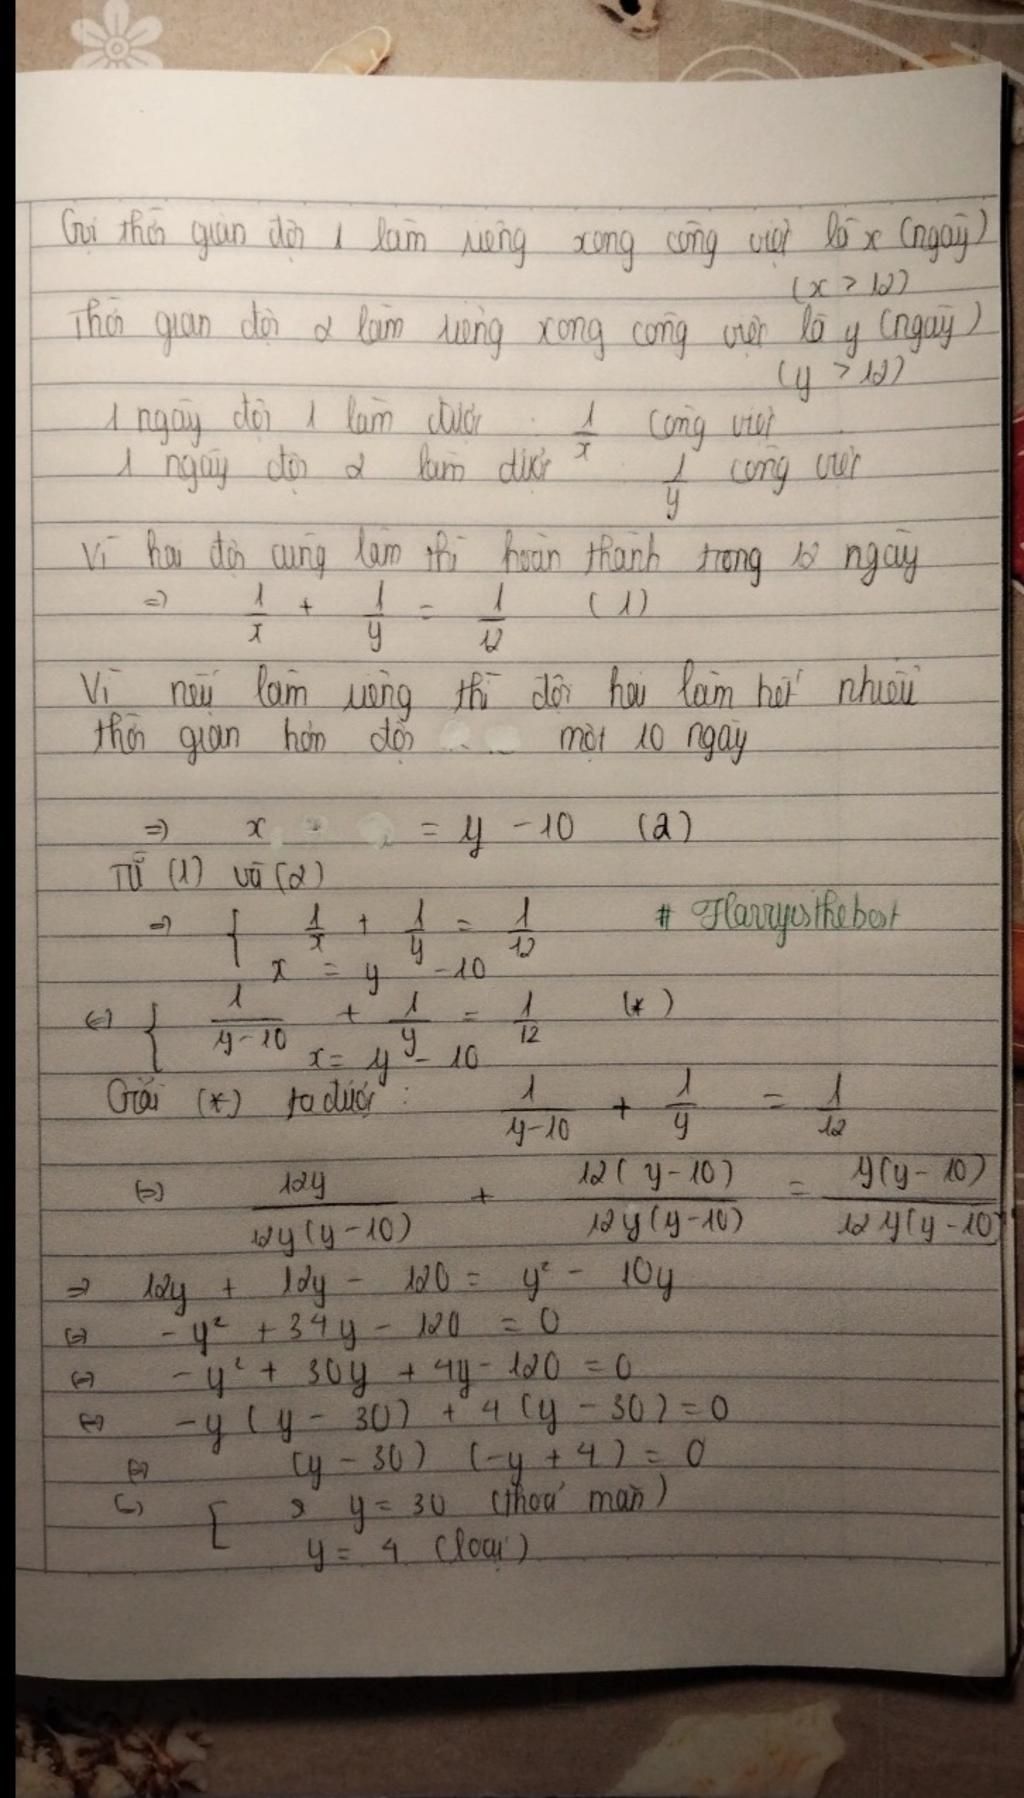 Gọi thời gian đội 1 làm riêng xong công việc là x (ngày)
(x > 12)
Thời gian đội 2 làm riêng xong công việc là y (ngày)
(y > 12)
1 ngày đội 1 làm được 1/x công việc
1 ngày đội 2 làm được 1/y công việc
Vì hai đội cùng làm thì hoàn thành trong 12 ngày
=> 1/x + 1/y = 1/12 (1)
Vì nếu làm riêng thì đội hai làm hết nhiều
thời gian hơn đội một 10 ngày
=> x = y - 10 (2)
Từ (1) và (2)
=> { 1/x + 1/y = 1/12 # Harryisthebest
x = y - 10
(=) { 1/(y-10) + 1/y = 1/12 (*)
x = y - 10
Giải (*) ta được : 1/(y-10) + 1/y = 1/12
(=) 12y/(12y(y-10)) + 12(y-10)/(12y(y-10)) = y(y-10)/(12y(y-10))
=> 12y + 12y - 120 = y² - 10y
(=) -y² + 34y - 120 = 0
(=) -y² + 30y + 4y - 120 = 0
(=) -y (y - 30) + 4 (y - 30) = 0
(=) (y - 30) (-y + 4) = 0
(=) [ y = 30 (thoả mãn)
y = 4 (loại)